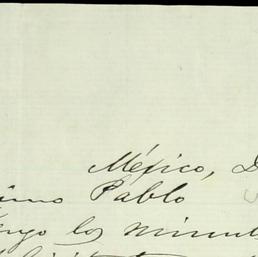 México, D
imo Pablo
engo los minut